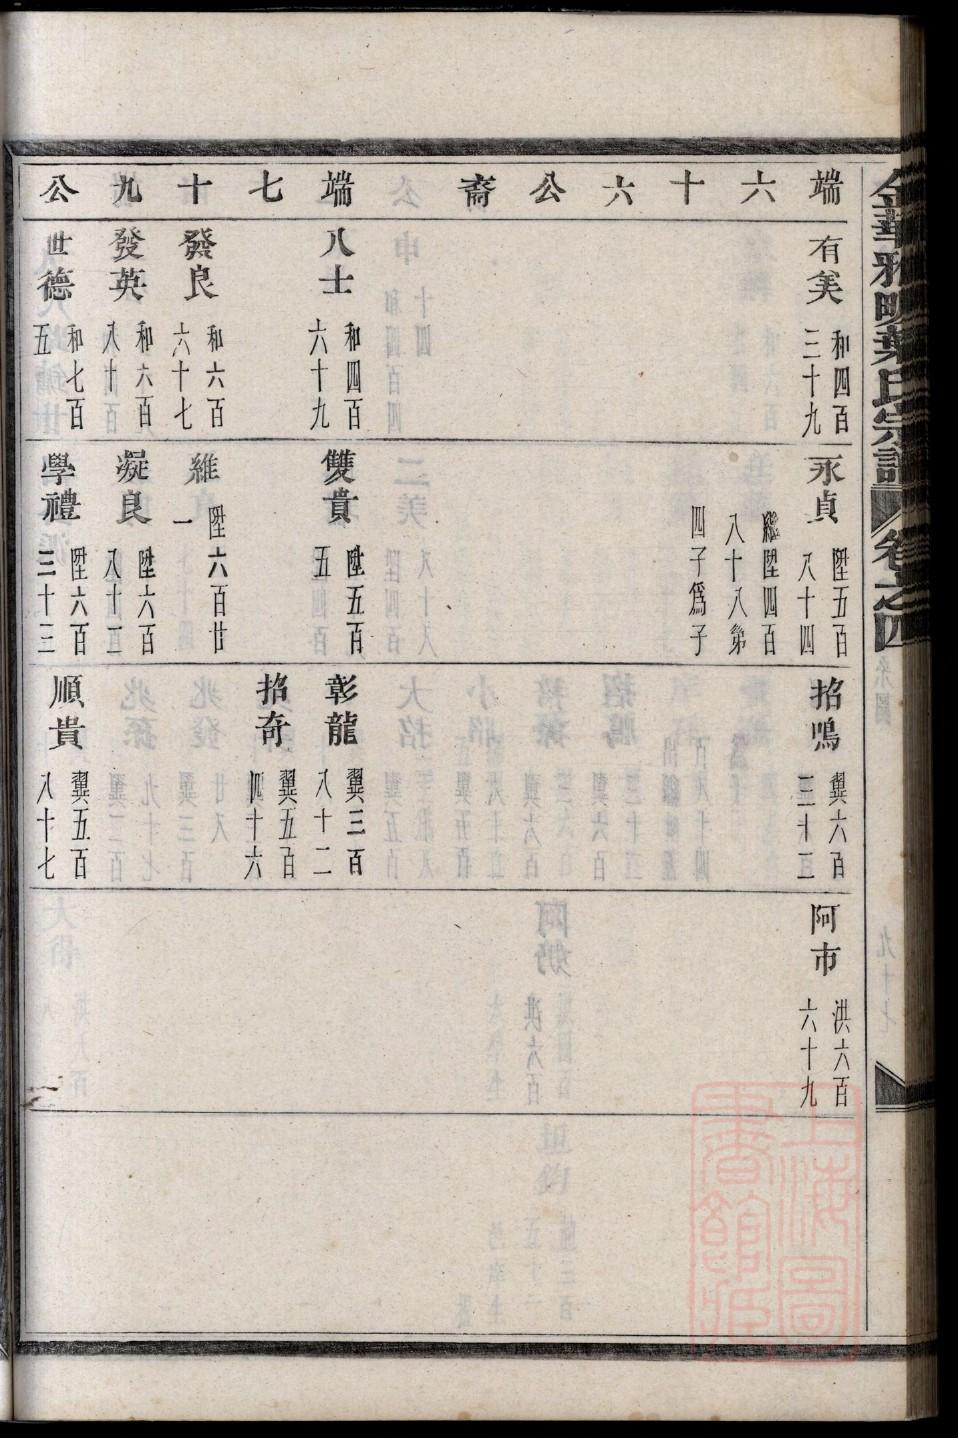 金華雅畈葉氏宗譜 卷之四
端六十六公裔
端七十九公
有美 和四百三十九
八士 和四百六十九
發良 和六百六十七
發英 和六百八十
世德 和七百五
永貞 陞五百八十四
繼陞四百八十八第四子爲子
雙貴 陞五百五
維 陞六百廿一
凝良 陞六百八十二
學禮 陞六百三十三
招鳴 翼六百三十三
彰龍 翼三百八十二
招奇 翼五百四十六
順貴 翼五百八十七
阿市 洪六百六十九
上海圖書館藏